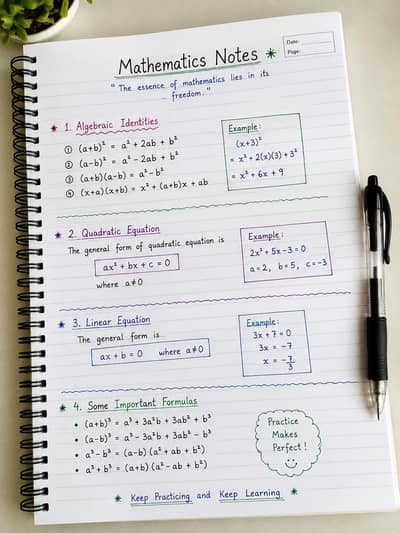 Mathematics Notes *
Date:
Page:
" The essence of mathematics lies in its
freedom. "
* 1. Algebraic Identities
① (a+b)² = a² + 2ab + b²
② (a-b)² = a² - 2ab + b²
③ (a+b)(a-b) = a² - b²
④ (x+a)(x+b) = x² + (a+b)x + ab
Example:
(x+3)²
= x² + 2(x)(3) + 3²
= x² + 6x + 9
* 2. Quadratic Equation
The general form of quadratic equation is
ax² + bx + c = 0
where a≠0
Example:
2x² + 5x - 3 = 0
a = 2, b = 5, c = -3
* 3. Linear Equation
The general form is
ax + b = 0 where a≠0
Example:
3x + 7 = 0
3x = -7
x = -7/3
* 4. Some Important Formulas
• (a+b)³ = a³ + 3a²b + 3ab² + b³
• (a-b)³ = a³ - 3a²b + 3ab² - b³
• a³ - b³ = (a-b) (a² + ab + b²)
• a³ + b³ = (a+b) (a² - ab + b²)
Practice
Makes
Perfect !
* Keep Practicing and Keep Learning *